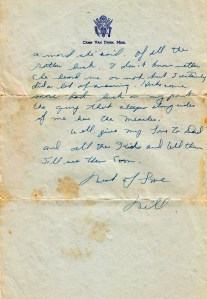 CAMP VAN DORN, MISS.
a word he said. Of all the
rotten luck. I don't know whether
he heard me or not but I certainly
did a lot of
more hard luck.
the guy that sleeps along side
of me has the measles.
Well give my love to Dad
and all the kids and tell them
I'll see them soon.
Best of Love
Bill